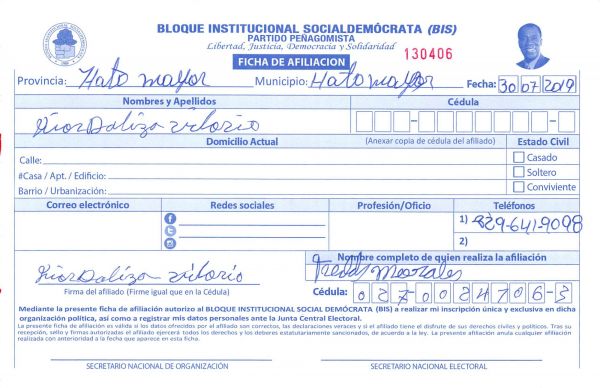 BLOQUE INSTITUCIONAL SOCIALDEMÓCRATA (BIS)
PARTIDO PEÑAGOMISTA
Libertad, Justicia, Democracia y Solidaridad
FICHA DE AFILIACION
130406
Provincia: Hato mayor Municipio: Hato mayor Fecha: 30 07 2019
Nombres y Apellidos Cédula
Domicilio Actual (Anexar copia de cédula del afiliado) Estado Civil
Calle: Casado
#Casa / Apt. / Edificio: Soltero
Barrio / Urbanización: Conviviente
Correo electrónico Redes sociales Profesión/Oficio Teléfonos
1) 829-641-9098
2)
Nombre completo de quien realiza la afiliación
Firma del afiliado (Firme igual que en la Cédula)
Cédula: 027-0024706-3
Mediante la presente ficha de afiliación autorizo al BLOQUE INSTITUCIONAL SOCIAL DEMÓCRATA (BIS) a realizar mi inscripción única y exclusiva en dicha
organización política, así como a registrar mis datos personales ante la Junta Central Electoral.
La presente ficha de afiliación es válida si los datos ofrecidos por el afiliado son correctos, las declaraciones veraces y si el afiliado tiene el disfrute de sus derechos civiles y políticos. Tras su
recepción, sello y firmas autorizadas el afiliado ejercerá todos los derechos y los deberes estatutariamente sancionados, de acuerdo a la ley. La presente afiliación anula cualquier afiliación
realizada con anterioridad a la fecha que aparece en esta ficha.
SECRETARIO NACIONAL DE ORGANIZACIÓN SECRETARIO NACIONAL ELECTORAL